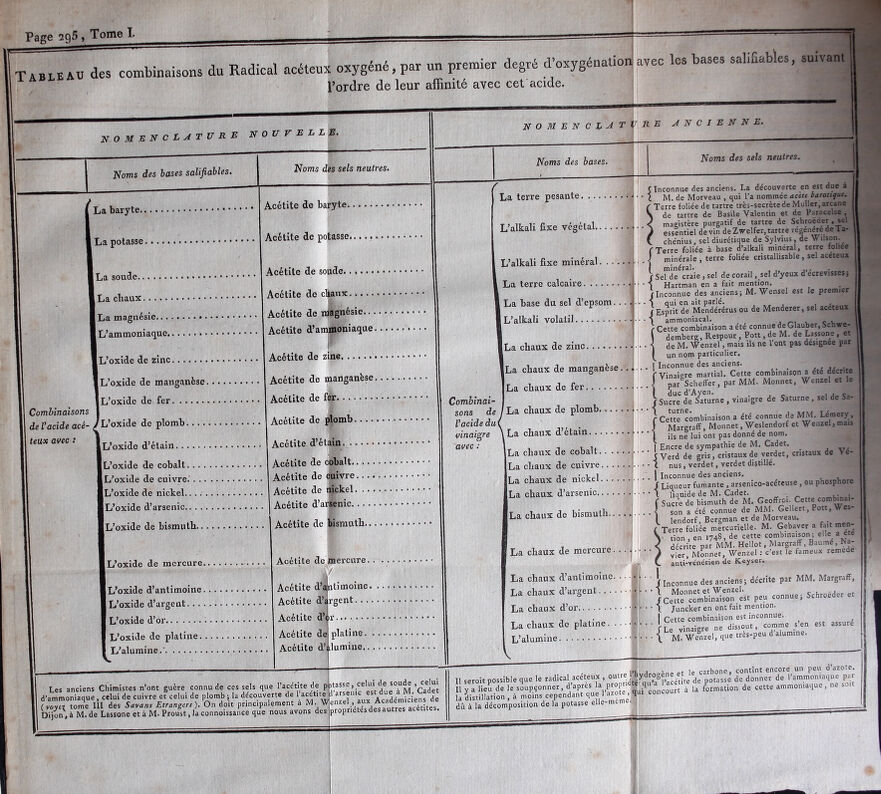 Page 295, Tome I.
TABLEAU des combinaisons du Radical acéteux oxygéné, par un premier degré d'oxygénation avec les bases salifiables, suivant
l'ordre de leur affinité avec cet acide.
NOMENCLATURE NOUVELLE.
Noms des bases salifiables.
Noms des sels neutres.
Combinaisons
de l'acide acé-
teux avec :
La baryte
Acétite de baryte
La potasse
Acétite de potasse
La soude
Acétite de soude
La chaux
Acétite de chaux
La magnésie
Acétite de magnésie
L'ammoniaque
Acétite d'ammoniaque
L'oxide de zinc
Acétite de zinc
L'oxide de manganèse
Acétite de manganèse
L'oxide de fer
Acétite de fer
L'oxide de plomb
Acétite de plomb
L'oxide d'étain
Acétite d'étain
L'oxide de cobalt
Acétite de cobalt
L'oxide de cuivre
Acétite de cuivre
L'oxide de nickel
Acétite de nickel
L'oxide d'arsenic
Acétite d'arsenic
L'oxide de bismuth
Acétite de bismuth
L'oxide de mercure
Acétite de mercure
L'oxide d'antimoine
Acétite d'antimoine
L'oxide d'argent
Acétite d'argent
L'oxide d'or
Acétite d'or
L'oxide de platine
Acétite de platine
L'alumine
Acétite d'alumine
NOMENCLATURE ANCIENNE.
Noms des bases.
Noms des sels neutres.
Combinai-
sons de
l'acide du
vinaigre
avec :
La terre pesante
Inconnue des anciens. La découverte en est due à
M. de Morveau, qui l'a nommée acète barotique.
L'alkali fixe végétal
Terre foliée de tartre très-secrète de Muller, arcane
de tartre de Basile Valentin et de Paracelse,
magistère purgatif de tartre de Schroëder, sel
essentiel de vin de Zwelfer, tartre régénéré de Ta-
chénius, sel diurétique de Sylvius, de Wilson.
L'alkali fixe minéral
Terre foliée à base d'alkali minéral, terre foliée
minérale, terre foliée cristallisable, sel acéteux
minéral.
La terre calcaire
Sel de craie, sel de corail, sel d'yeux d'écrevisses;
Hartman en a fait mention.
La base du sel d'epsom
Inconnue des anciens; M. Wensel est le premier
qui en ait parlé.
L'alkali volatil
Esprit de Mendérérus ou de Menderer, sel acéteux
ammoniacal.
La chaux de zinc
Cette combinaison a été connue de Glauber, Schwe-
demberg, Respour, Pott, de M. de Lassone, et
de M. Wenzel, mais ils ne l'ont pas désignée par
un nom particulier.
La chaux de manganèse
Inconnue des anciens.
La chaux de fer
Vinaigre martial. Cette combinaison a été décrite
par Scheffer, par MM. Monnet, Wenzel et le
duc d'Ayen.
La chaux de plomb
Sucre de Saturne, vinaigre de Saturne, sel de Sa-
turne.
La chaux d'étain
Cette combinaison a été connue de MM. Lémery,
Margraff, Monnet, Weslendorf et Wenzel, mais
ils ne lui ont pas donné de nom.
La chaux de cobalt
Encre de sympathie de M. Cadet.
La chaux de cuivre
Verd de gris, cristaux de verdet, cristaux de Vé-
nus, verdet, verdet distillé.
La chaux de nickel
Inconnue des anciens.
La chaux d'arsenic
Liqueur fumante, arsenico-acéteuse, ou phosphore
liquide de M. Cadet.
La chaux de bismuth
Sucre de bismuth de M. Geoffroi. Cette combinai-
son a été connue de MM. Gellert, Pott, Wes-
lendorf, Bergman et de Morveau.
La chaux de mercure
Terre foliée mercurielle. M. Gebaver a fait men-
tion, en 1748, de cette combinaison; elle a été
décrite par MM. Hellot, Margraff, Baumé, Na-
vier, Monnet, Wenzel : c'est le fameux remède
anti-vénésien de Keyser.
La chaux d'antimoine
Inconnue des anciens; décrite par MM. Margraff,
Monnet et Wenzel.
La chaux d'argent
La chaux d'or
Cette combinaison est peu connue; Schroëder et
Juncker en ont fait mention.
La chaux de platine
Cette combinaison est inconnue.
L'alumine
Le vinaigre ne dissout, comme s'en est assuré
M. Wenzel, que très-peu d'alumine.
Les anciens Chimistes n'ont guère connu de ces sels que l'acétite de potasse, celui de soude, celui
d'ammoniaque, celui de cuivre et celui de plomb; la découverte de l'acétite d'arsenic est due à M. Cadet
(voyez tome III des Savans Etrangers). On doit principalement à M. Wenzel, aux Académiciens de
Dijon, à M. de Lassone et à M. Proust, la connoissance que nous avons des propriétés des autres acétites.
Il seroit possible que le radical acéteux, outre l'hydrogène et le carbone, contînt encore un peu d'azote.
Il y a lieu de le soupçonner, d'après la propriété qu'a l'acétite de potasse de donner de l'ammoniaque par
la distillation, à moins cependant que l'azote, qui concourt à la formation de cette ammoniaque, ne soit
dû à la décomposition de la potasse elle-même.